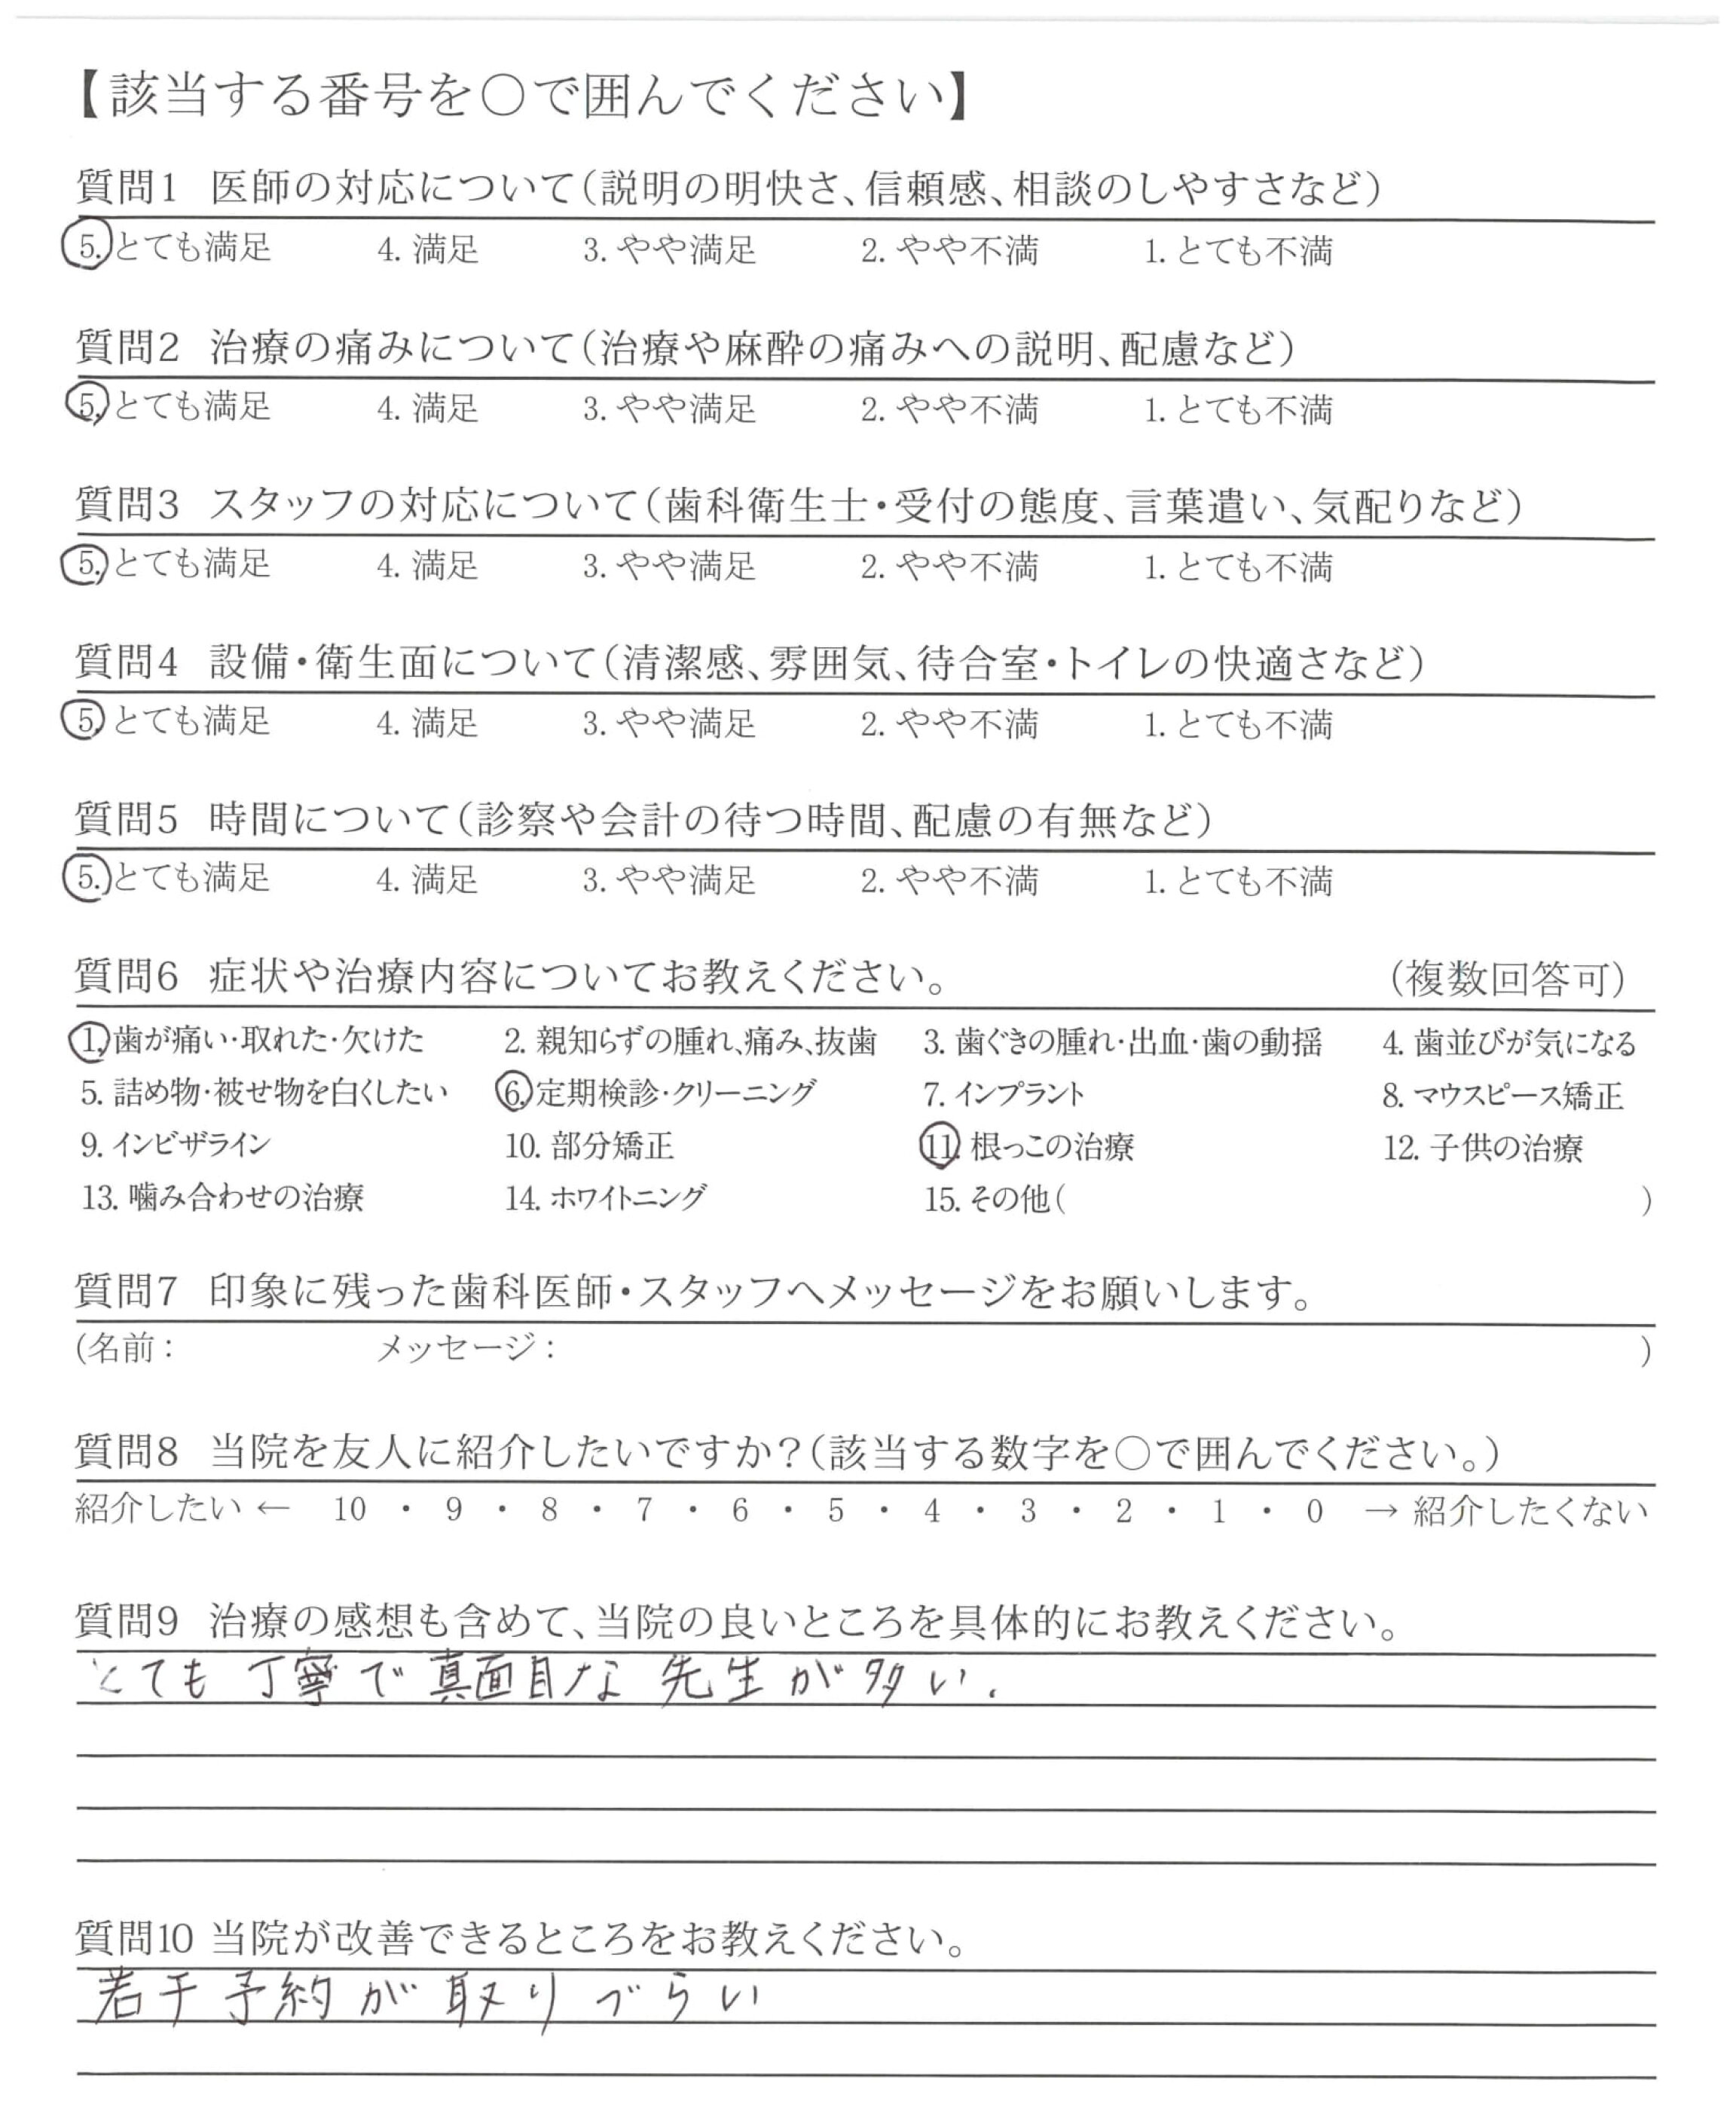 【該当する番号を○で囲んでください】
質問1 医師の対応について（説明の明快さ、信頼感、相談のしやすさなど）
5. とても満足 4. 満足 3. やや満足 2. やや不満 1. とても不満
質問2 治療の痛みについて（治療や麻酔の痛みへの説明、配慮など）
5. とても満足 4. 満足 3. やや満足 2. やや不満 1. とても不満
質問3 スタッフの対応について（歯科衛生士・受付の態度、言葉遣い、気配りなど）
5. とても満足 4. 満足 3. やや満足 2. やや不満 1. とても不満
質問4 設備・衛生面について（清潔感、雰囲気、待合室・トイレの快適さなど）
5. とても満足 4. 満足 3. やや満足 2. やや不満 1. とても不満
質問5 時間について（診察や会計の待つ時間、配慮の有無など）
5. とても満足 4. 満足 3. やや満足 2. やや不満 1. とても不満
質問6 症状や治療内容についてお教えください。 （複数回答可）
1. 歯が痛い・取れた・欠けた 2. 親知らずの腫れ、痛み、抜歯 3. 歯ぐきの腫れ・出血・歯の動揺 4. 歯並びが気になる
5. 詰め物・被せ物を白くしたい 6. 定期検診・クリーニング 7. インプラント 8. マウスピース矯正
9. インビザライン 10. 部分矯正 11. 根っこの治療 12. 子供の治療
13. 噛み合わせの治療 14. ホワイトニング 15. その他（ ）
質問7 印象に残った歯科医師・スタッフへメッセージをお願いします。
(名前： メッセージ： )
質問8 当院を友人に紹介したいですか？（該当する数字を○で囲んでください。）
紹介したい ← 10 ・ 9 ・ 8 ・ 7 ・ 6 ・ 5 ・ 4 ・ 3 ・ 2 ・ 1 ・ 0 → 紹介したくない
質問9 治療の感想も含めて、当院の良いところを具体的にお教えください。
とても丁寧で真面目な先生が多い.
質問10 当院が改善できるところをお教えください。
若干予約が取りづらい